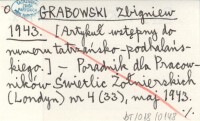 O GRABOWSKI Zbigniew
1943. [Artykuł wstępny do
numeru tatrzańsko-podhalań-
skiego.] — Poradnik dla Pracow-
ników Świetlic Żołnierskich
(Londyn) nr 4 (33), maj 1943.
BT/018/0143